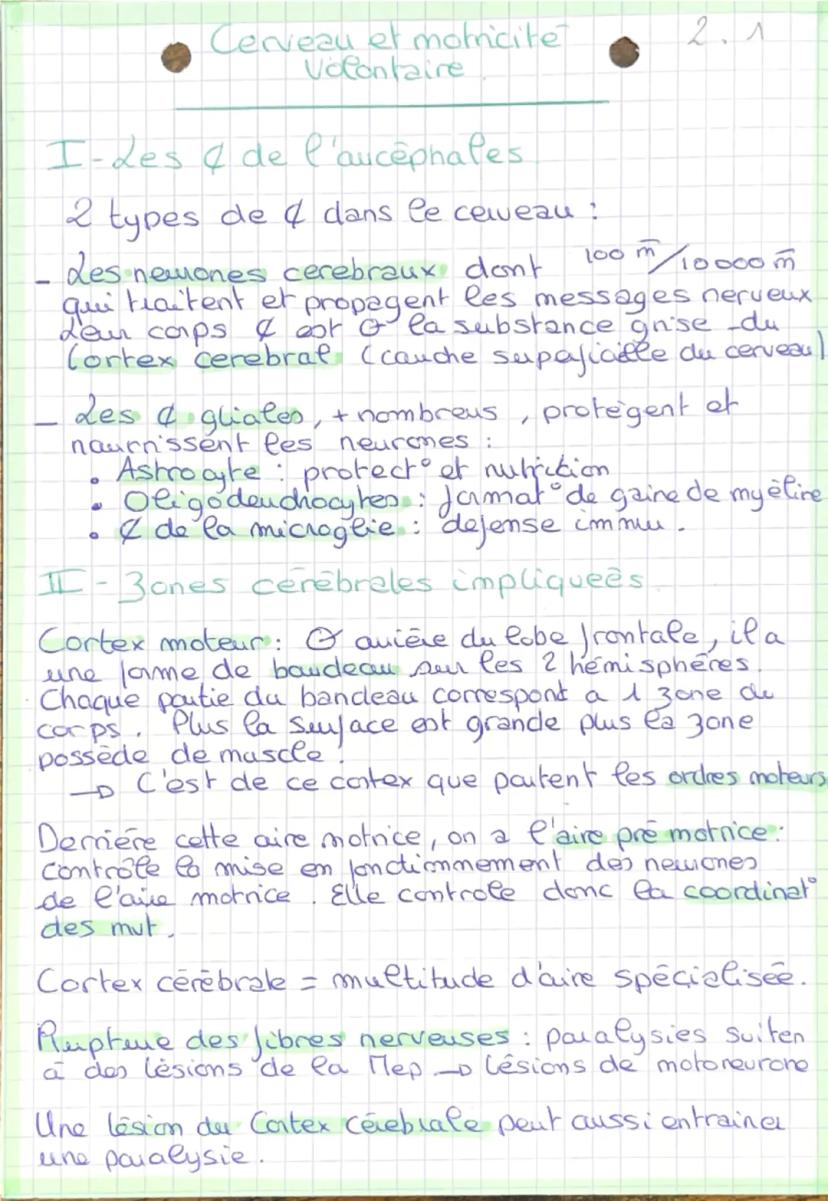 Cerveau et motricité
Volontaire
2.1
I - Les ¢ de l'aucéphales
2 types de ¢ dans le cerveau :
- Les neurones cerebraux dont 100 m̄/10000 m̄
qui traitent et propagent les messages nerveux
Leur corps ¢ est la substance grise du
Cortex cerebral (couche superficielle du cerveau)
- Les ¢ gliales, + nombreus, protègent et
nourrissent les neurones :
• Astrocyte : protect° et nutrition
• Oligodendrocytes : format° de gaine de myéline
• ¢ de la microglie : defense immu.
II - Zones cérébrales impliqueés
Cortex moteur : arrière du lobe frontale, il a
une forme de bandeau sur les 2 hémisphères.
Chaque partie du bandeau correspond a 1 zone du
corps. Plus la surface est grande plus la zone
possède de muscle.
→ C'est de ce cortex que partent les ordres moteurs
Derriére cette aire motrice, on a l'aire pré motrice :
contrôle la mise en fonctionnement des neurones
de l'aire motrice. Elle controle donc la coordinat°
des mvt.
Cortex cérébrale = multitude d'aire spécialisée.
Rupture des fibres nerveuses : paralysies suiten
à des lésions de la Mep → lésions de motoneurone
Une lésion du Cortex cérebrale peut aussi entrainer
une paralysie.